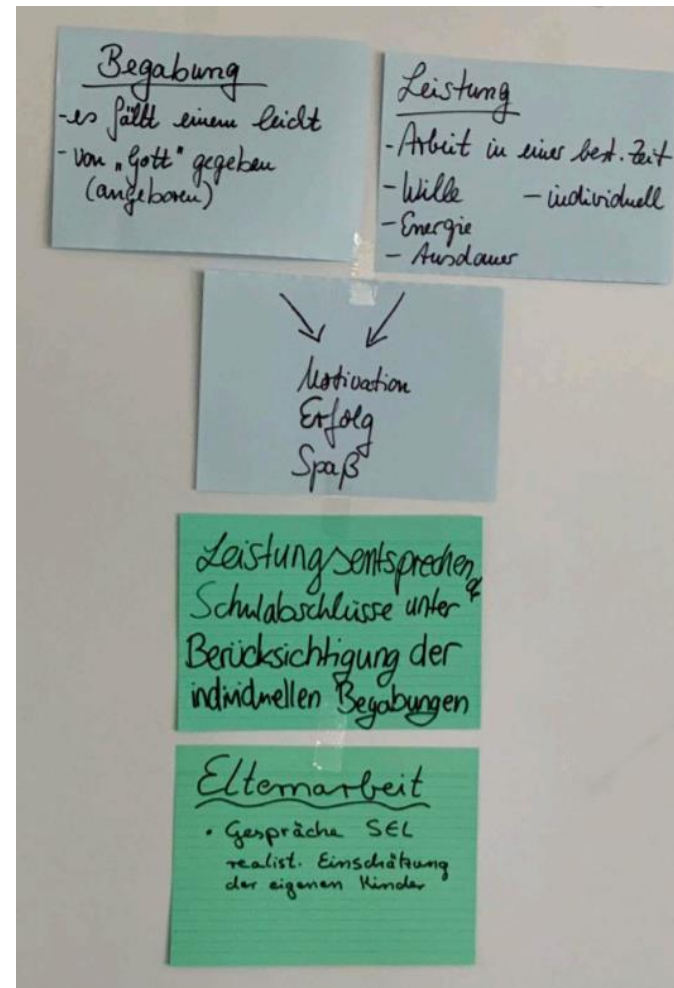 Begabung
- es fällt einem leicht
- von „Gott" gegeben
(angeboren)
Leistung
- Arbeit in einer best. Zeit
- Wille - individuell
- Energie
- Ausdauer
Motivation
Erfolg
Spaß
Leistungsentsprechende
Schulabschlüsse unter
Berücksichtigung der
individuellen Begabungen
Elternarbeit
• Gespräche SEL
realist. Einschätzung
der eigenen Kinder